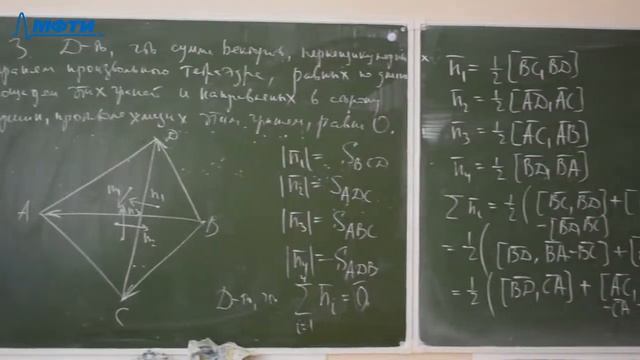 МФТИ
3. Д-ть, что сумма векторов, перпендикулярных
граням произвольного тетраэдра, равных по
площадям этих граней и направленных в сторону
вершин, противолежащих этим граням, равна 0.
D
A
B
C
n₁
n₂
n₃
n₄
|n̄₁| = S_BCD
|n̄₂| = S_ADC
|n̄₃| = S_ABC
|n̄₄| = S_ADB
Д-ть, что ∑ n̄ᵢ = 0̄
i=1
4
n̄₁ = ½ [B̄C̄, B̄D̄]
n̄₂ = ½ [ĀD̄, ĀC̄]
n̄₃ = ½ [ĀC̄, ĀB̄]
n̄₄ = ½ [B̄D̄, B̄Ā]
∑ n̄ᵢ = ½ ( [B̄C̄, B̄D̄] + [
-[B̄D̄, B̄C̄]
= ½ ( [B̄D̄, B̄Ā - B̄C̄] + [
= ½ ( [B̄D̄, C̄Ā] + [ĀC̄,
-C̄Ā